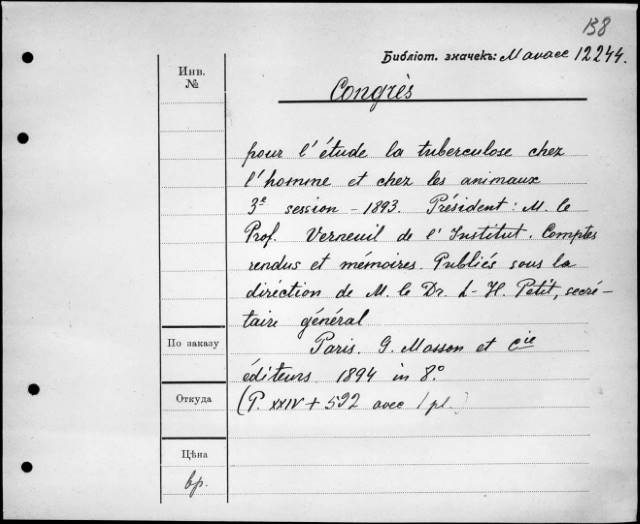 B8
Библіот. значекъ: 12244.
Инв.
№
Congrès
pour l'étude la tuberculose chez
l'homme et chez les animaux
3e session - 1893. Président: M. le
Prof. Verneuil de l'Institut. Comptes
rendus et mémoires. Publiés sous la
direction de M. le Dr. L-H. Petit, secré-
taire général
По заказу
Paris. G. Masson et cie
éditeurs 1894 in 8.°
Откуда
(P. XXIV + 592 avec 1 pl.)
Цѣна
вр.